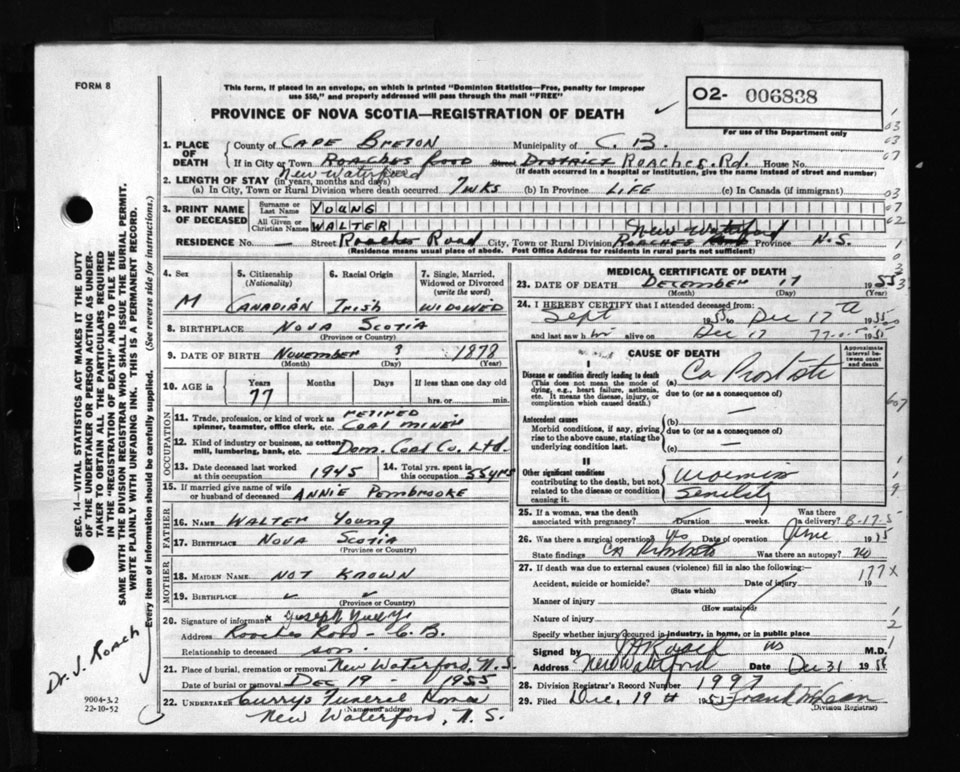 FORM 8
This form, if placed in an envelope, on which is printed "Dominion Statistics—Free, penalty for improper
use $50," and properly addressed will pass through the mail "FREE"
PROVINCE OF NOVA SCOTIA—REGISTRATION OF DEATH
O2- 006838
For use of the Department only
1. PLACE OF DEATH County of CAPE BRETON Municipality of C. B.
If in City or Town ROACHES ROAD Street DISTRICT ROACHES. RD. House No.
(If death occurred in a hospital or institution, give the name instead of street and number)
New Waterford
2. LENGTH OF STAY (in years, months and days)
(a) In City, Town or Rural Division where death occurred 7 WKS (b) In Province LIFE (c) In Canada (if immigrant)
3. PRINT NAME OF DECEASED
Surname or Last Name YOUNG
All Given or Christian Names WALTER
New Waterford
RESIDENCE No. — Street Roaches Road City, Town or Rural Division ROACHES ROAD Province N.S.
(Residence means usual place of abode. Post Office Address for residents in rural parts not sufficient)
4. Sex M
5. Citizenship (Nationality) CANADIAN
6. Racial Origin IRISH
7. Single, Married, Widowed or Divorced (write the word) WIDOWED
8. BIRTHPLACE NOVA SCOTIA
(Province or Country)
9. DATE OF BIRTH NOVEMBER ? 1878
(Month) (Day) (Year)
10. AGE in Years 77 Months Days If less than one day old
hrs. or min.
OCCUPATION
11. Trade, profession, or kind of work as spinner, teamster, office clerk, etc. RETIRED COAL MINER
12. Kind of industry or business, as cotton mill, lumbering, bank, etc. Dom. Coal Co. Ltd.
13. Date deceased last worked at this occupation 1945
14. Total yrs. spent in this occupation 55 yrs
15. If married give name of wife or husband of deceased ANNIE PEMBROOKE
FATHER
16. NAME WALTER YOUNG
17. BIRTHPLACE NOVA SCOTIA
(Province or Country)
MOTHER
18. MAIDEN NAME NOT KNOWN
19. BIRTHPLACE
(Province or Country)
20. Signature of informant x Joseph
Address Roaches Road - C.B.
Relationship to deceased son.
21. Place of burial, cremation or removal New Waterford, N.S.
Date of burial or removal DEC 19 - 1955
22. UNDERTAKER Currys Funeral Home
(Name and address)
New Waterford, N.S.
MEDICAL CERTIFICATE OF DEATH
23. DATE OF DEATH DECEMBER 17 1955
(Month) (Day) (Year)
24. I HEREBY CERTIFY that I attended deceased from:
Sept 1955 to Dec 17th 1955
and last saw h alive on Dec 17 1955
CAUSE OF DEATH
Approximate interval between onset and death
I
Disease or condition directly leading to death
(This does not mean the mode of dying, e.g., heart failure, asthenia, etc. It means the disease, injury, or complication which caused death.)
(a) Ca Prostate
due to (or as a consequence of)
Antecedent causes
Morbid conditions, if any, giving rise to the above cause, stating the underlying condition last.
(b) —
due to (or as a consequence of)
(c) —
II
Other significant conditions contributing to the death, but not related to the disease or condition causing it.
Uraemia
Senility
25. If a woman, was the death associated with pregnancy? Duration weeks. Was there a delivery?
26. Was there a surgical operation? yes Date of operation June 1955
State findings CA Prostate Was there an autopsy? no
27. If death was due to external causes (violence) fill in also the following:—
177X
Accident, suicide or homicide? Date of injury 19
(State which)
Manner of injury
(How sustained)
Nature of injury
Specify whether injury occurred in industry, in home, or in public place
Signed by M.D.
Address New Waterford Date Dec 31 19
28. Division Registrar's Record Number 1997
29. Filed Dec. 19th 1955
(Division Registrar)
SEC. 14—VITAL STATISTICS ACT MAKES IT THE DUTY
OF THE UNDERTAKER OR PERSON ACTING AS UNDER-
TAKER TO OBTAIN ALL THE PARTICULARS REQUIRED
IN THE "REGISTRATION OF DEATH" AND TO FILE THE
SAME WITH THE DIVISION REGISTRAR WHO SHALL ISSUE THE BURIAL PERMIT.
WRITE PLAINLY WITH UNFADING INK. THIS IS A PERMANENT RECORD.
Every item of information should be carefully supplied. (See reverse side for instructions.)
Dr. J. Roach
9004-3.2
22-10-52